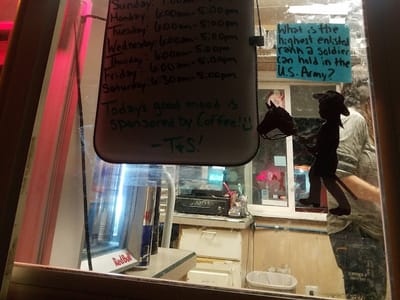 Sunday
Monday 6:00am-5:00pm
Tuesday 6:00am-5:00pm
Wednesday 6:00am-5:00pm
Thursday 6:00am-5:00pm
Friday 6:30am-5:00pm
Saturday 6:30am-5:00pm
Todays good mood is
sponsored by Coffee!
-T&S!
What is the
highest enlisted
rank a soldier
can hold in the
U.S. Army?
RedBull